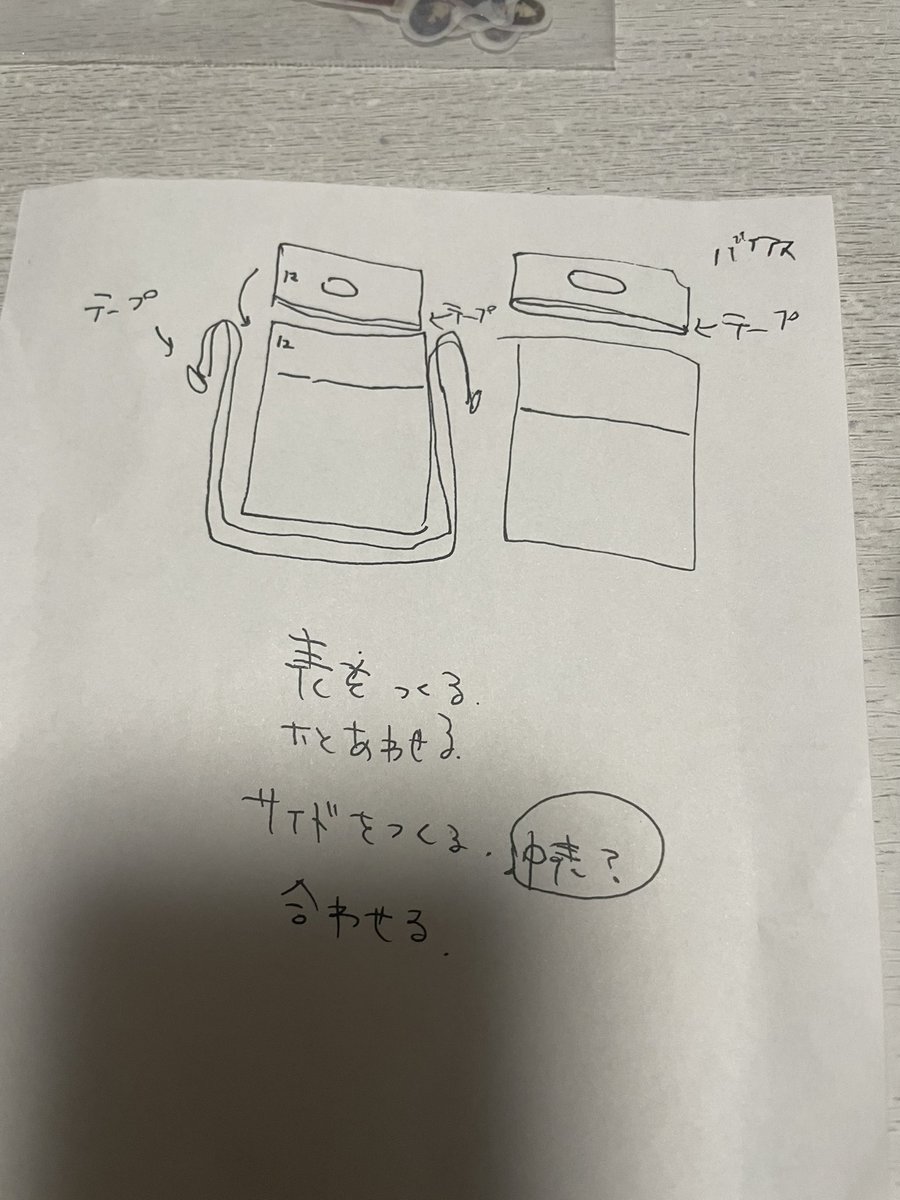 バイアス
テープ
12
テープ
テープ
12
表をつくる.
とあわせる.
サイドをつくる.
中表?
合わせる.